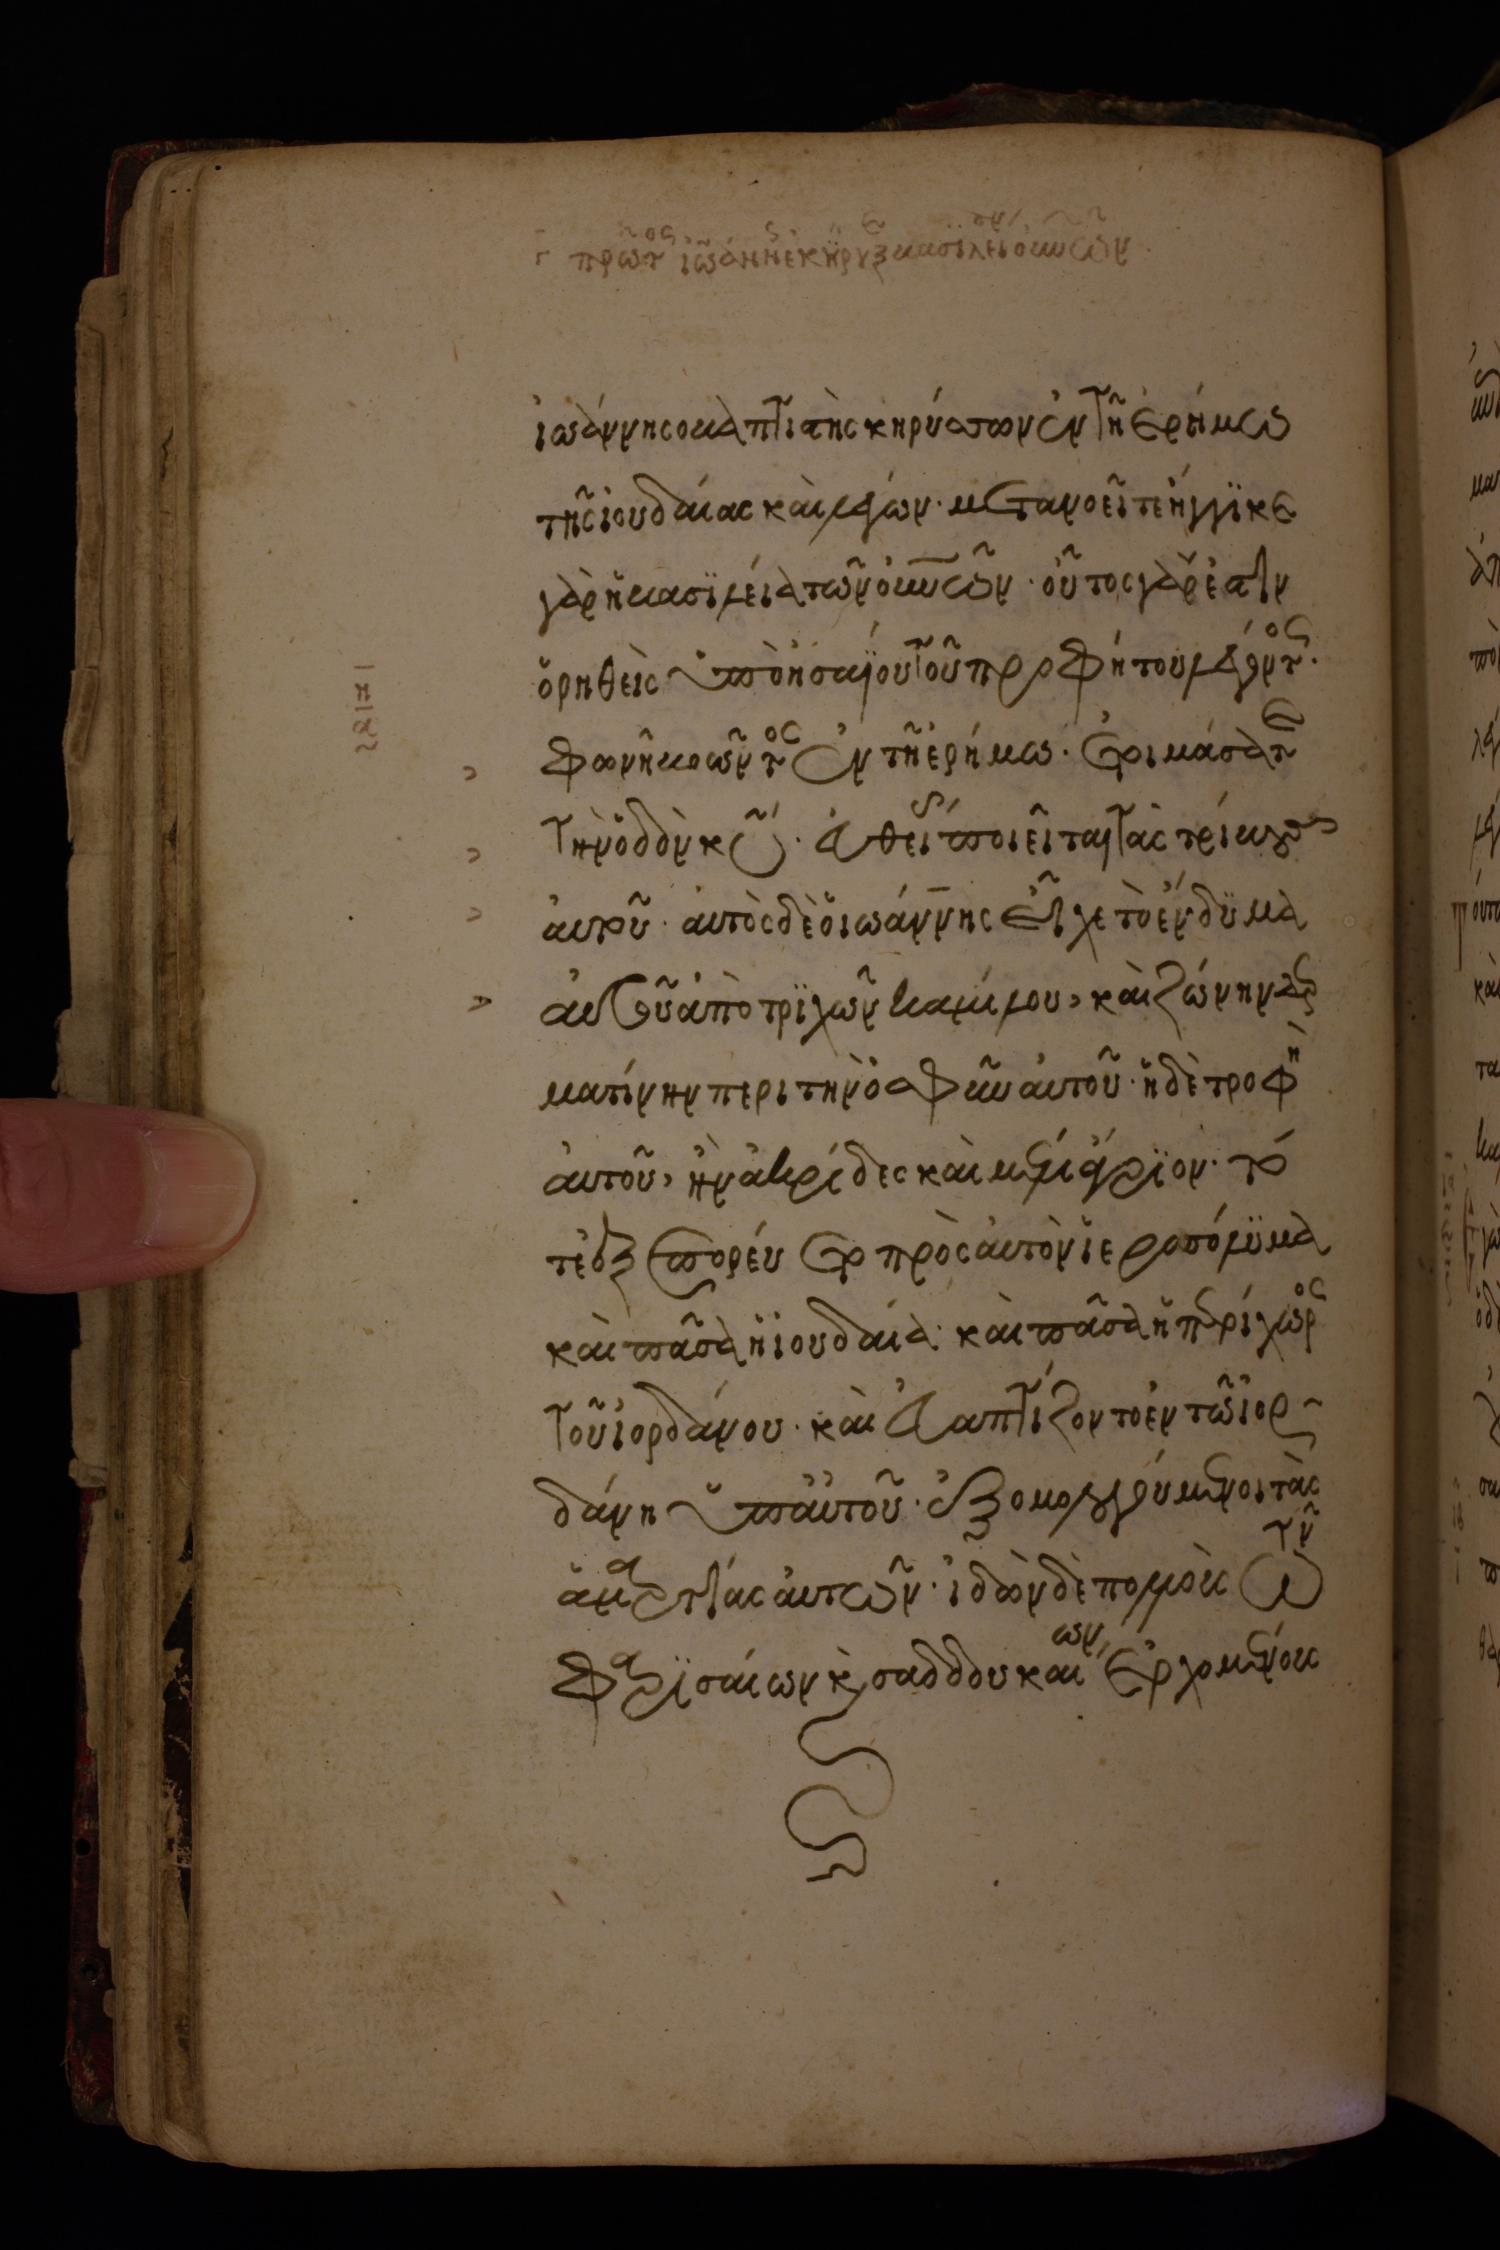 πρῶτος ἰωάννης ἐκήρυξε βασιλείαν οὐνῶν
ἰωάννης ὁ βαπτιστὴς κηρύσσων ἐν τῆ ἐρήμω
τῆς ἰουδαίας καὶ λέγων· μετανοεῖτε ἤγγϊκε
γὰρ ἡ βασϊλεία τῶν οὐνῶν· οὗτος γάρ ἐστιν
ὁ ρηθεὶς ὑπὸ ἡσαΐου τοῦ προφήτου λέγοντος·
φωνῆ βοῶντος ἐν τῆ ἐρήμω· ἑτοιμάσατε
τὴν ὁδὸν κυ· εὐθείας ποιεῖται τὰς τρίβους
αὐτοῦ· αὐτὸς δὲ ὁ ἰωάννης εἶχε τὸ ἔνδϋμα
αὐτοῦ ἀπὸ τρϊχῶν καμήλου, καὶ ζώνην δερ
ματίνην περι τὴν ὀσφῦν αὐτοῦ· ἡ δὲ τροφὴ
αὐτοῦ, ἦν ἀκρίδες καὶ μέλι ἄγρϊον· τό
τε ἐξεπορεύετο πρὸς αὐτὸν ἱεροσόλϋμα
καὶ πᾶσα ἡ ἰουδαία· καὶ πᾶσα ἡ περίχωρος
τοῦ ἰορδάνου· καὶ ἐβαπτίζοντο ἐν τῶ ἰορ
δάνη ὑπ αὐτοῦ· ἐξομολογούμενοι τὰς
ἁμαρτίας αὐτῶν· ἰδὼν δὲ πολλοὺς τῶν
φαρϊσαίων κ σαδδουκαίων ἐρχομένους